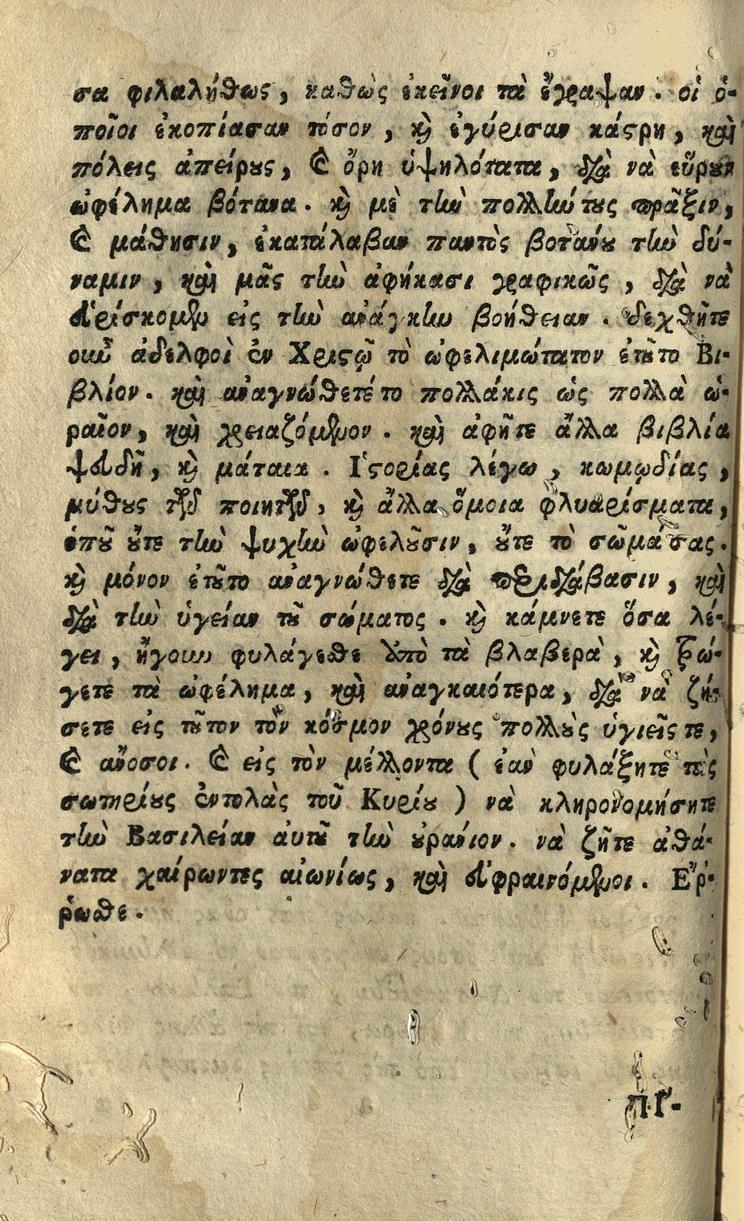 σα φιλαλήθως, καθὼς ἐκεῖνοι τὰ ἔγραψαν. οἱ ὁ-
ποῖοι ἐκοπίασαν τόσον, κỳ ἐγύρισαν κάστρη, καὶ
πόλεις ἀπείρους, καὶ ὄρη ὑψηλότατα, διὰ νὰ εὕρουν
ὠφέλημα βότανα. καὶ μὲ τὴν πολλήν τους πρᾶξιν,
καὶ μάθησιν, ἐκατάλαβαν παντὸς βοτάνου τὴν δύ-
ναμιν, καὶ μᾶς τὴν ἀφήκασι γραφικῶς, διὰ νὰ
εὑρίσκομεν εἰς τὴν ἀνάγκην βοήθειαν. δεχθῆτε
οὖν ἀδελφοὶ ἐν Χριστῷ τὸ ὠφελιμώτατον ἐτοῦτο Βι-
βλίον. καὶ ἀναγνώθετέ το πολλάκις ὡς πολλὰ ὡ-
ραῖον, καὶ χρειαζόμενον. καὶ ἀφῆτε ἄλλα βιβλία
ψευδῆ, καὶ μάταια. Ἱστορίας λέγω, κωμῳδίας,
μύθους τῶν ποιητῶν, καὶ ἄλλα ὅμοια φλυαρίσματα,
ὁποῦ οὔτε τὴν ψυχὴν ὠφελοῦσιν, οὔτε τὸ σῶμα σας.
καὶ μόνον ἐτοῦτο ἀναγνώθετε διὰ περιδιάβασιν, καὶ
διὰ τὴν ὑγείαν τοῦ σώματος. καὶ κάμνετε ὅσα λέ-
γει, ἤγουν φυλάγεσθε ἀπὸ τὰ βλαβερὰ, καὶ τρώ-
γετε τὰ ὠφέλημα, καὶ ἀναγκαιότερα, διὰ νὰ ζή-
σετε εἰς τοῦτον τὸν κόσμον χρόνους πολλοὺς ὑγιεῖς τε,
καὶ ἄνοσοι. καὶ εἰς τὸν μέλλοντα (ἐὰν φυλάξητε τὰς
σωτηρίους ἐντολὰς τοῦ Κυρίου) νὰ κληρονομήσητε
τὴν Βασιλείαν αὐτοῦ τὴν οὐράνιον. νὰ ζῆτε ἀθά-
νατα χαίρωντες αἰωνίως, καὶ εὐφραινόμενοι. Ἔρ-
ρωσθε.
ΠΓ-